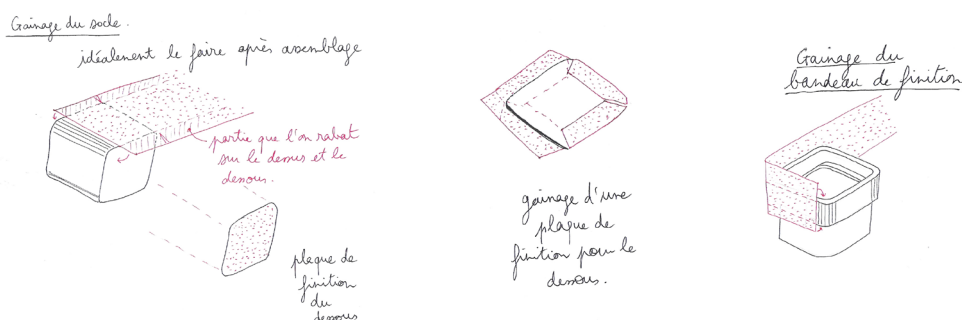 Gainage du socle.
idéalement le faire après assemblage
partie que l'on rabat
sur le dessus et le
dessous.
plaque de
finition
du
dessous
gainage d'une
plaque de
finition pour le
dessous.
Gainage du
bandeau de finition